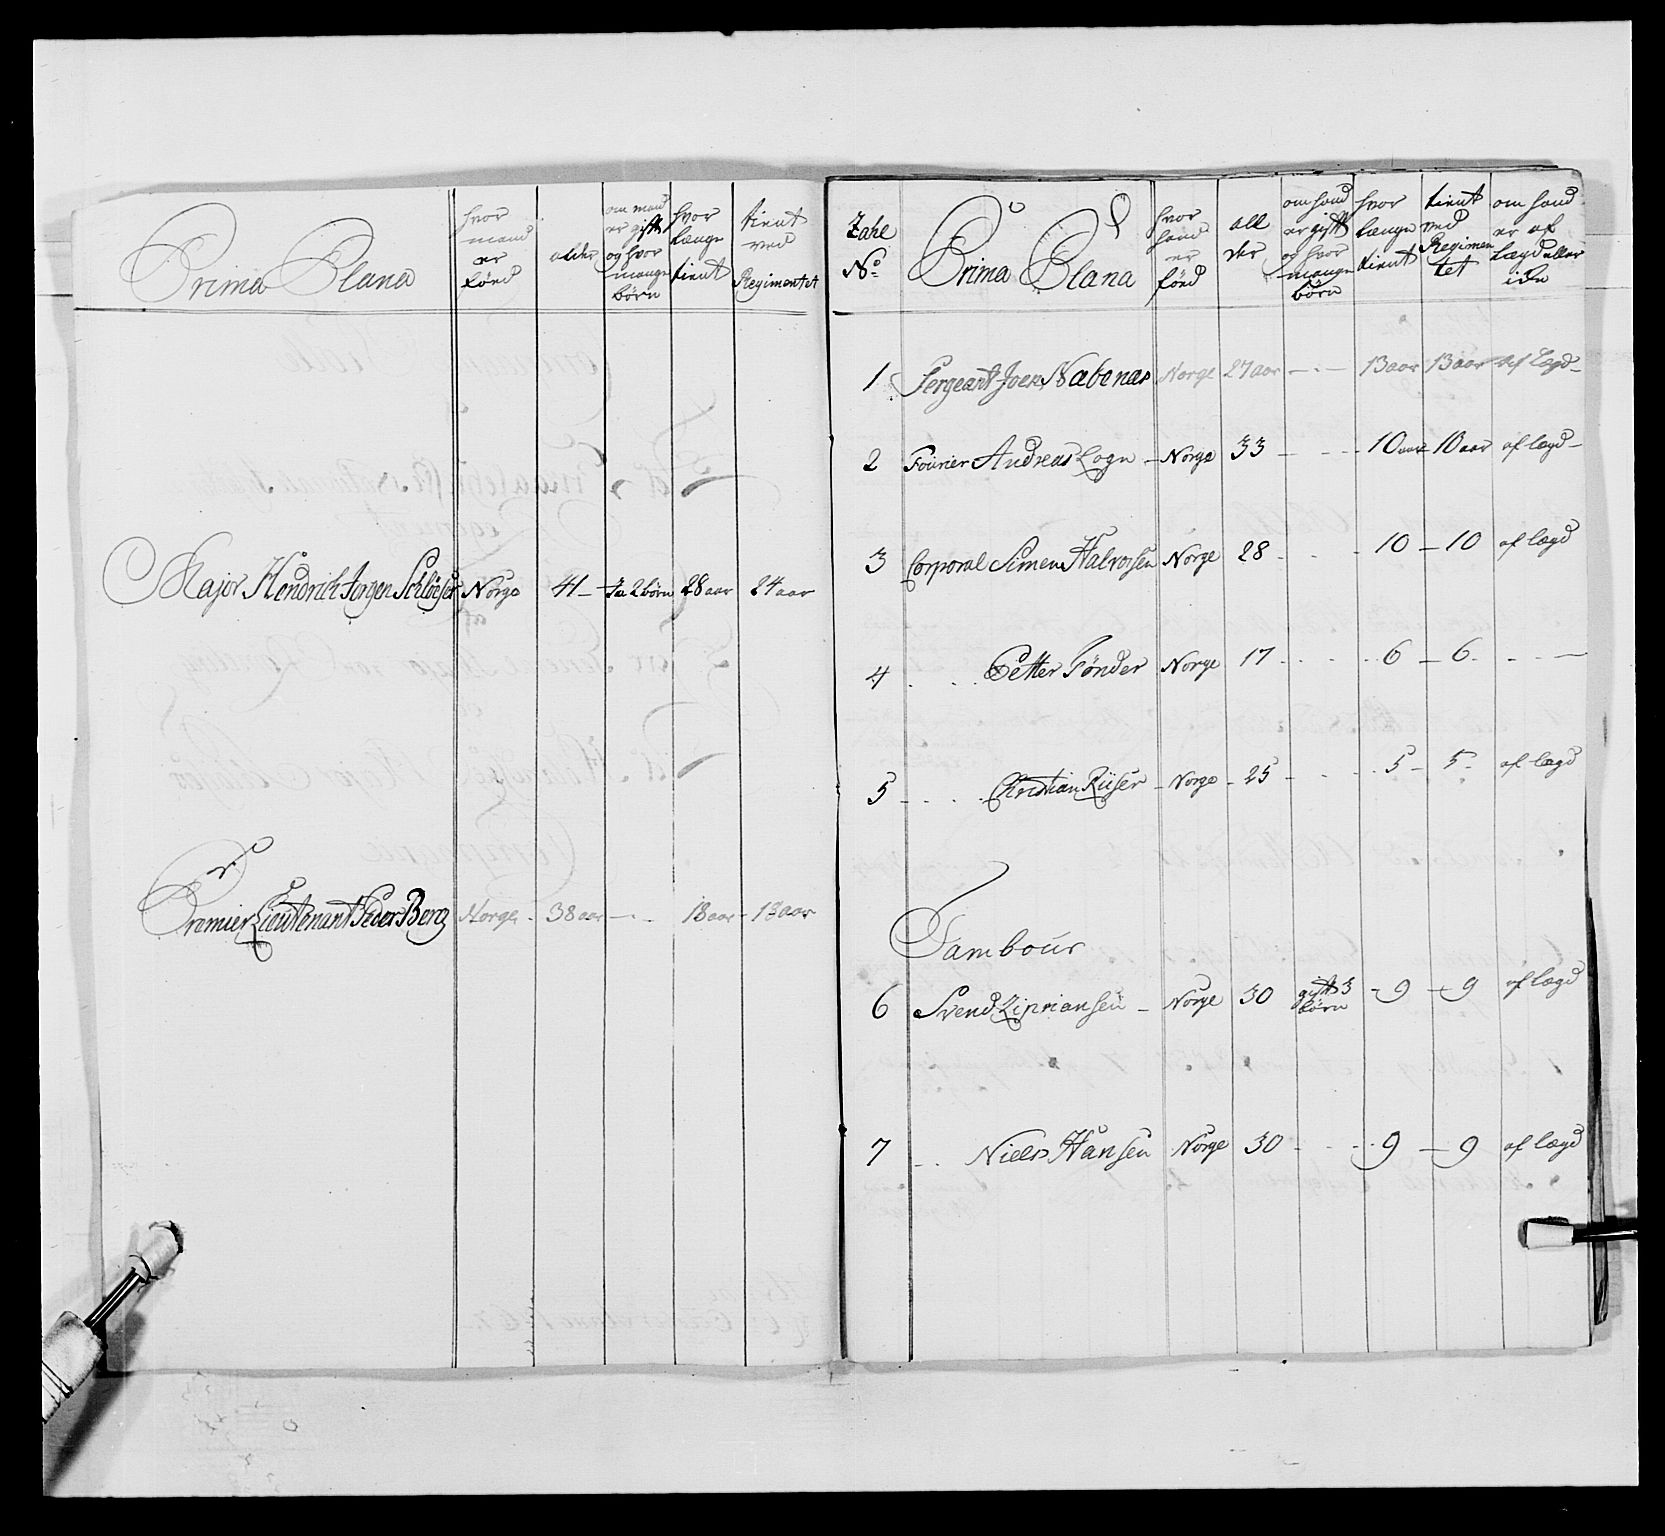 Prima Plana | hvor mand er fönd | alder | om mand er gift og hvor mange börn | hvor længe tient | tient ved Regimentet
Major Hendrich Jörgen Schlöser | Norge | 41 – | Ja 2 börn | 28 aar | 24 aar
Premier Lieutenant Peder Berg | Norge - | 38 aar | – · – | 18 aar | - 18 aar
Zahl No | Prima Plana | hvor hand er fönd | all der | om hand er gift og hvor mange börn | hvor længe tient | tient ved Regimentet | om hand er af lægd eller ide
1 | Sergeant Joen Næbenæs | Norge | 27 aar | – · – | 13 aar | 13 aar | af Lægd
2 | Fourier Andreas Logn – | Norge | 33 | – - - | 10 aar | 10 aar | af lægd –
3 | Corporal Simen Halvorsen | Norge | 28 | - - - | 10 | – 10 | af lægd
4 | - - - Petter Tönder | Norge | 17 | - - - | 6 | – 6 | - - –
5 | - - - - Christian Riiser | Norge | 25 | - - - | 5 – | 5 - | af lægd
Tambour
6 | Svend Zipriansen – | Norge | 30 | gift 3 börn | 9 | – 9 | af lægd
7 | - - Niels Hansen | Norge | 30 | - - - | 9 | – 9 | af lægd